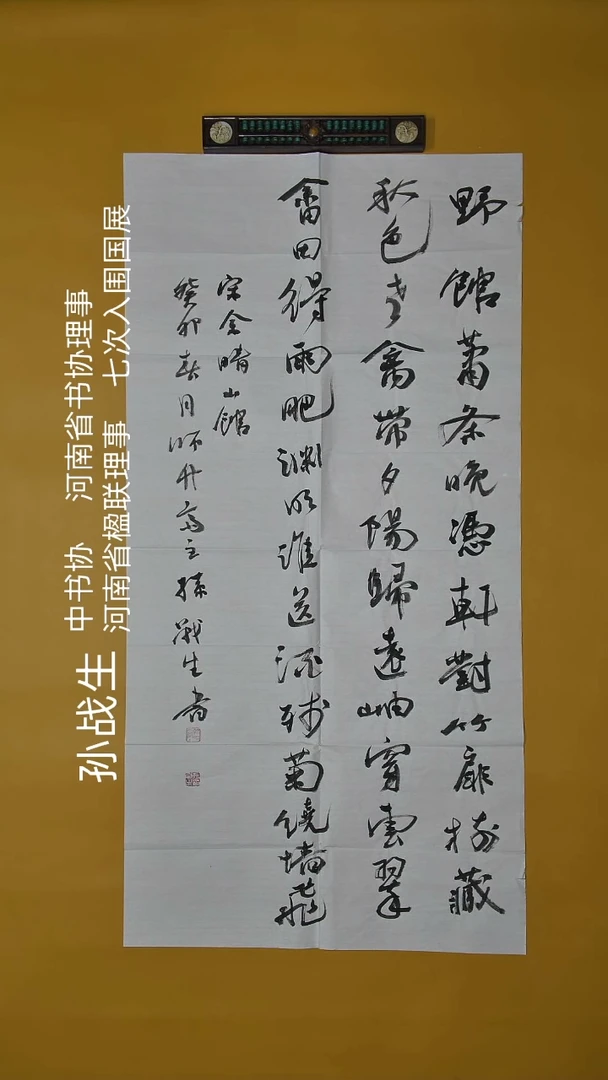 野館蕭条晚憑軒對竹扉樹藏
秋色老禽帶夕陽歸遠岫穿雲翠
畬田得雨肥渊明誰送酒残菊繞墙飛
宋余晴山館
癸卯春月师竹斋主孫戰生書
孙战生
中书协 河南省书协理事
河南省楹联理事 七次入围国展